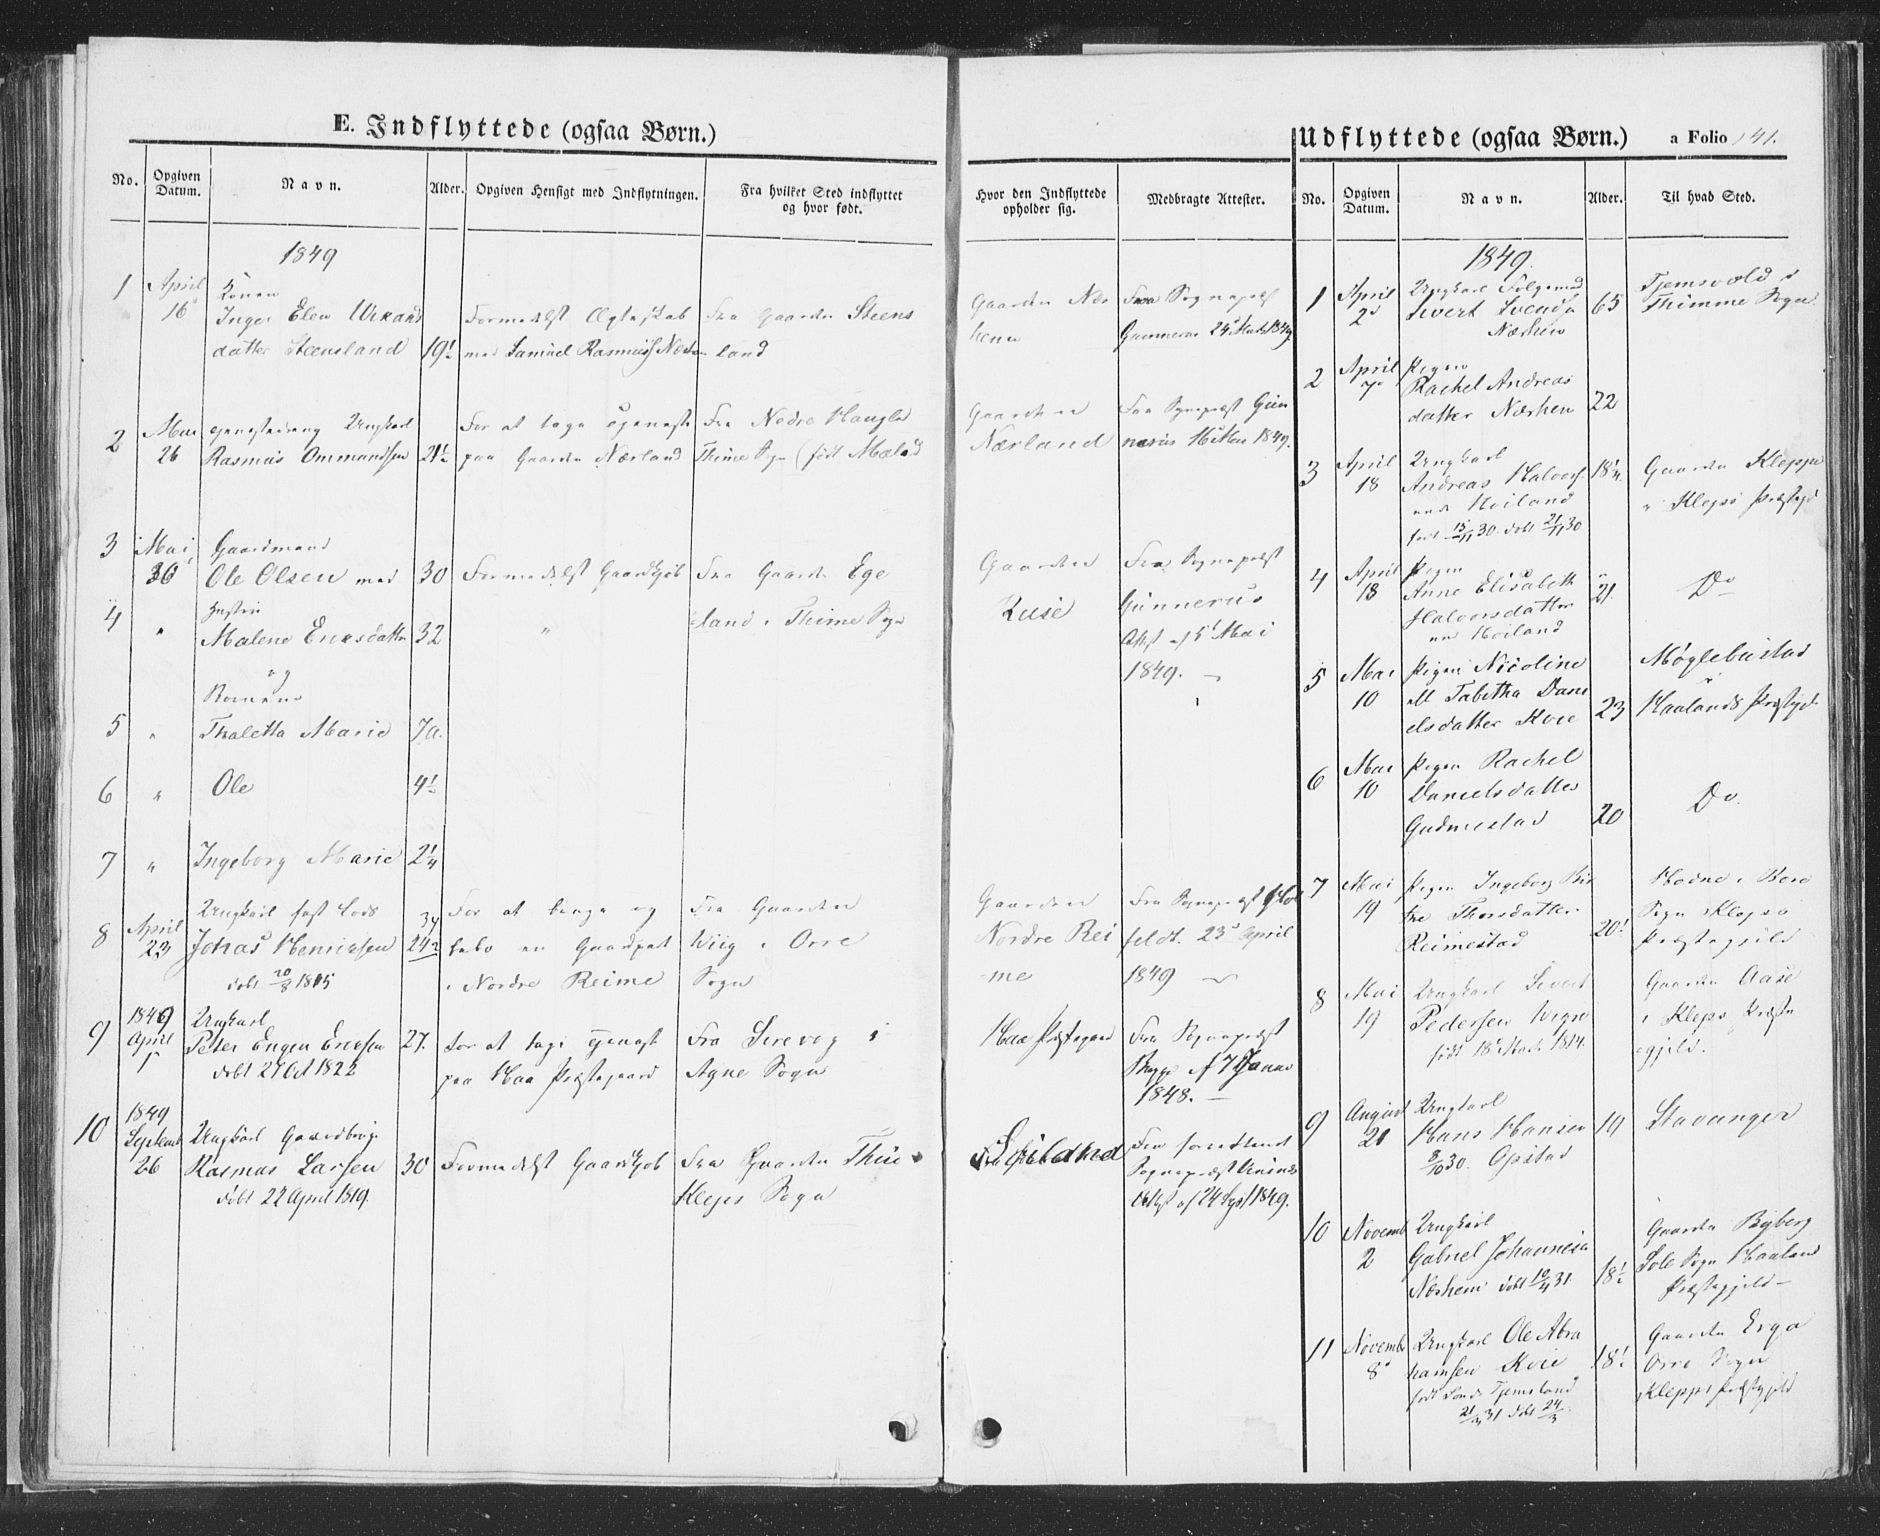 E. Indflyttede (ogsaa Børn.)
No.
Opgiven Datum.
Navn.
Alder.
Opgiven Hensigt med Indflytningen.
Fra hvilket Sted indflyttet og hvor født.
Hvor den Indflyttede opholder sig.
Medbragte Attester.
1849
1
April
16
Konen
Inger Elen
datter Steensland
19½
Formedelst Ægteskab
med Samuel Rasmuss
Fra Gaarden Steens
land
Gaarden Næs
heim
Fra Sognepræst
Gunnerus 24 1849
2
Mai
26
Ungkarl
Rasmus Ommundsen
21½
For at tage tjeneste
paa Gaarden Nærland
Fra Nedre Haugland
Thime Sogn (født
Gaarden
Nærland
Fra Sognepræst Gun
nerus 16 Mai 1849.
3
Mai
30
Gaardmand
Ole Olsen med
30
Formedelst Gaardkjøb
Fra Gaarden Ege
land i Thime Sogn
Gaarden
Fra Sognepræst
Gunnerus
Attest af 5 Mai
1849.
4
"
Hustru
Malene Eriksdatter
32
"
og
Børnene
5
"
Thaletta Marie
7 a.
6
"
Ole
4½
7
"
Ingeborg Marie
2¼
8
April
23
Ungkarl
Jonas Henriksen
døbt 20/8 1815
34
For at bruge og
bebo en Gaardpart
i Nordre Reime
Fra Gaarden
Wiig i Orre
Sogn
Gaarden
Nordre Rei
me
Fra Sognepræst
feldt. 23 April
1849
9
1849
April
Ungkarl
Peter Ericksen
døbt 27 Oct 1822
27.
For at tage tjeneste
paa Haa Præstegaard
Fra Sirevog i
Agne Sogn
Haa Præstegaard
Fra Sognepræst
af 7 Janua
1848.
10
1849
Septemb
26
Ungkarl Gaardbruger
Rasmus Larsen
døbt 22 April 1819.
30
Formedelst Gaardkjøb
Fra Gaarden Thu
Kleps Sogn
Fra
Sognepræst
Attest af 24 Sept 1849.
Udflyttede (ogsaa Børn.)
a Folio 141.
No.
Opgiven Datum.
Navn.
Alder.
Til hvad Sted.
1849.
1
April
2
Ungkarl
Sivert Svends
Næsheim
65
Tjemsvold i
Thimme Sogn
2
April
7
Pigen
Rachel Andreas
datter Næsheim
22
3
April
18
Ungkarl
Andreas Halvors
Hoiland
født 15/11 30. døbt 21/11 30
18¼
Gaarden Kleppe
i Klepp Præstegjd
4
April
18
Pigen
Anne Elisabeth
Halvorsdatter
Hoiland
21.
Do
5
Mai
10
Pigen Nicoline
Tabitha Dani
elsdatter Kvie
23
Møglebustad
Haalands Præstegjd
6
Mai
10
Pigen Rachel
Danielsdatter
Gudmestad
20
Do
7
Mai
19
Pigen Ingeborg Bir
tre Thorsdatter
Reimestad
20½
Hodne i Bore
Sogn Klepps
Præstegjeld
8
Mai
19
Ungkarl Sivert
Pedersen
født 18 1814.
Gaarden
i Klepps Præste
gjeld.
9
August
21
Ungkarl
Hans Hansen
8/10 30. Opstad
19
Stavanger
10
Novemb
2
Ungkarl
Gabriel Johannesen
Næsheim døbt 10/4 31.
18½
Gaarden Byberg
Sole Sogn Haaland
Præstegjeld
11
Novemb
8
Ungkarl Ole Abra
hamsen Kvie
født Tjemsland
21/3 31 døbt 24/3
18½
Gaarden Erga
Orre Sogn
Klepps Præstegjeld